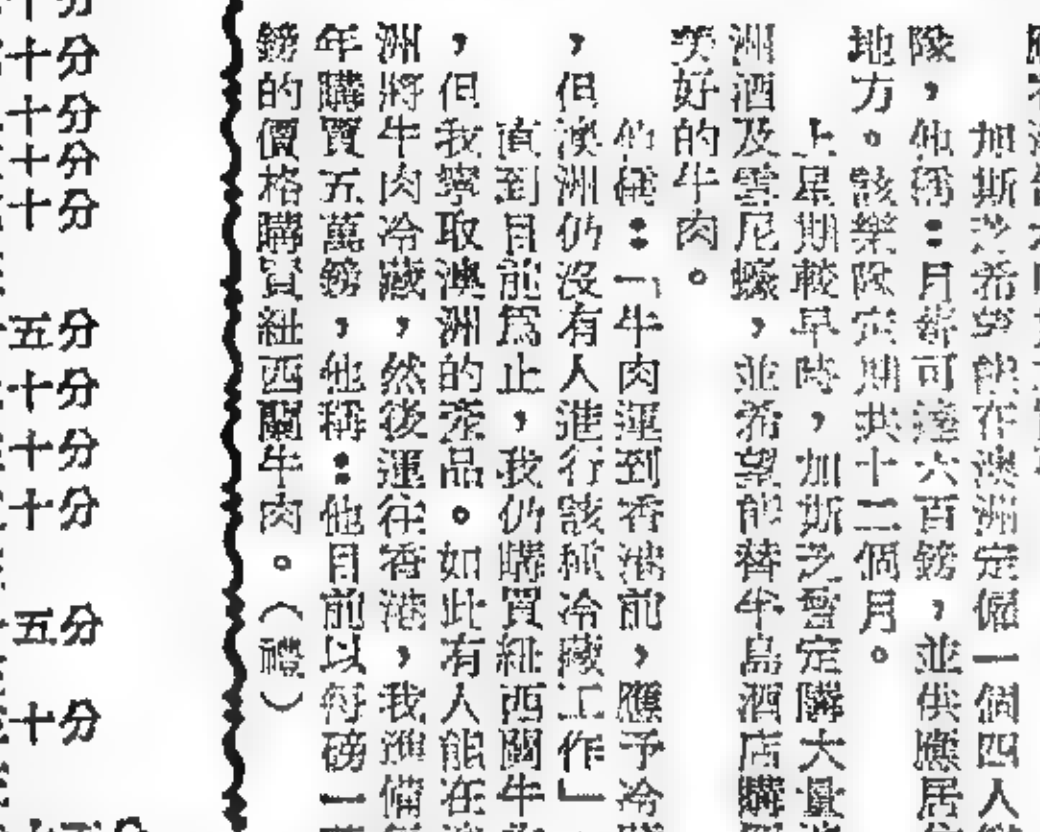 加斯芝希望能在澳洲定僱一個四人
隊，他稱：月薪可達六百鎊，並供應居
地方。該樂隊定期共十二個月。
上星期載早時，加斯芝曾定購大量
洲酒及雲尼蠔，並希望能替半島酒店購
美好的牛肉。
他稱：「牛肉運到香港前，應予冷
，但澳洲仍沒有人進行該種冷藏工作」
直到目前為止，我仍購買紐西蘭牛
，但我寧取澳洲的產品。如此有人能在
洲將牛肉冷藏，然後運往香港，我準備
年購買五萬鎊，他稱：他目前以每磅一
鎊的價格購買紐西蘭牛肉。（禮）
十分
十分
十分
十分
十分
五分
十分
十分
十分
五分
十分